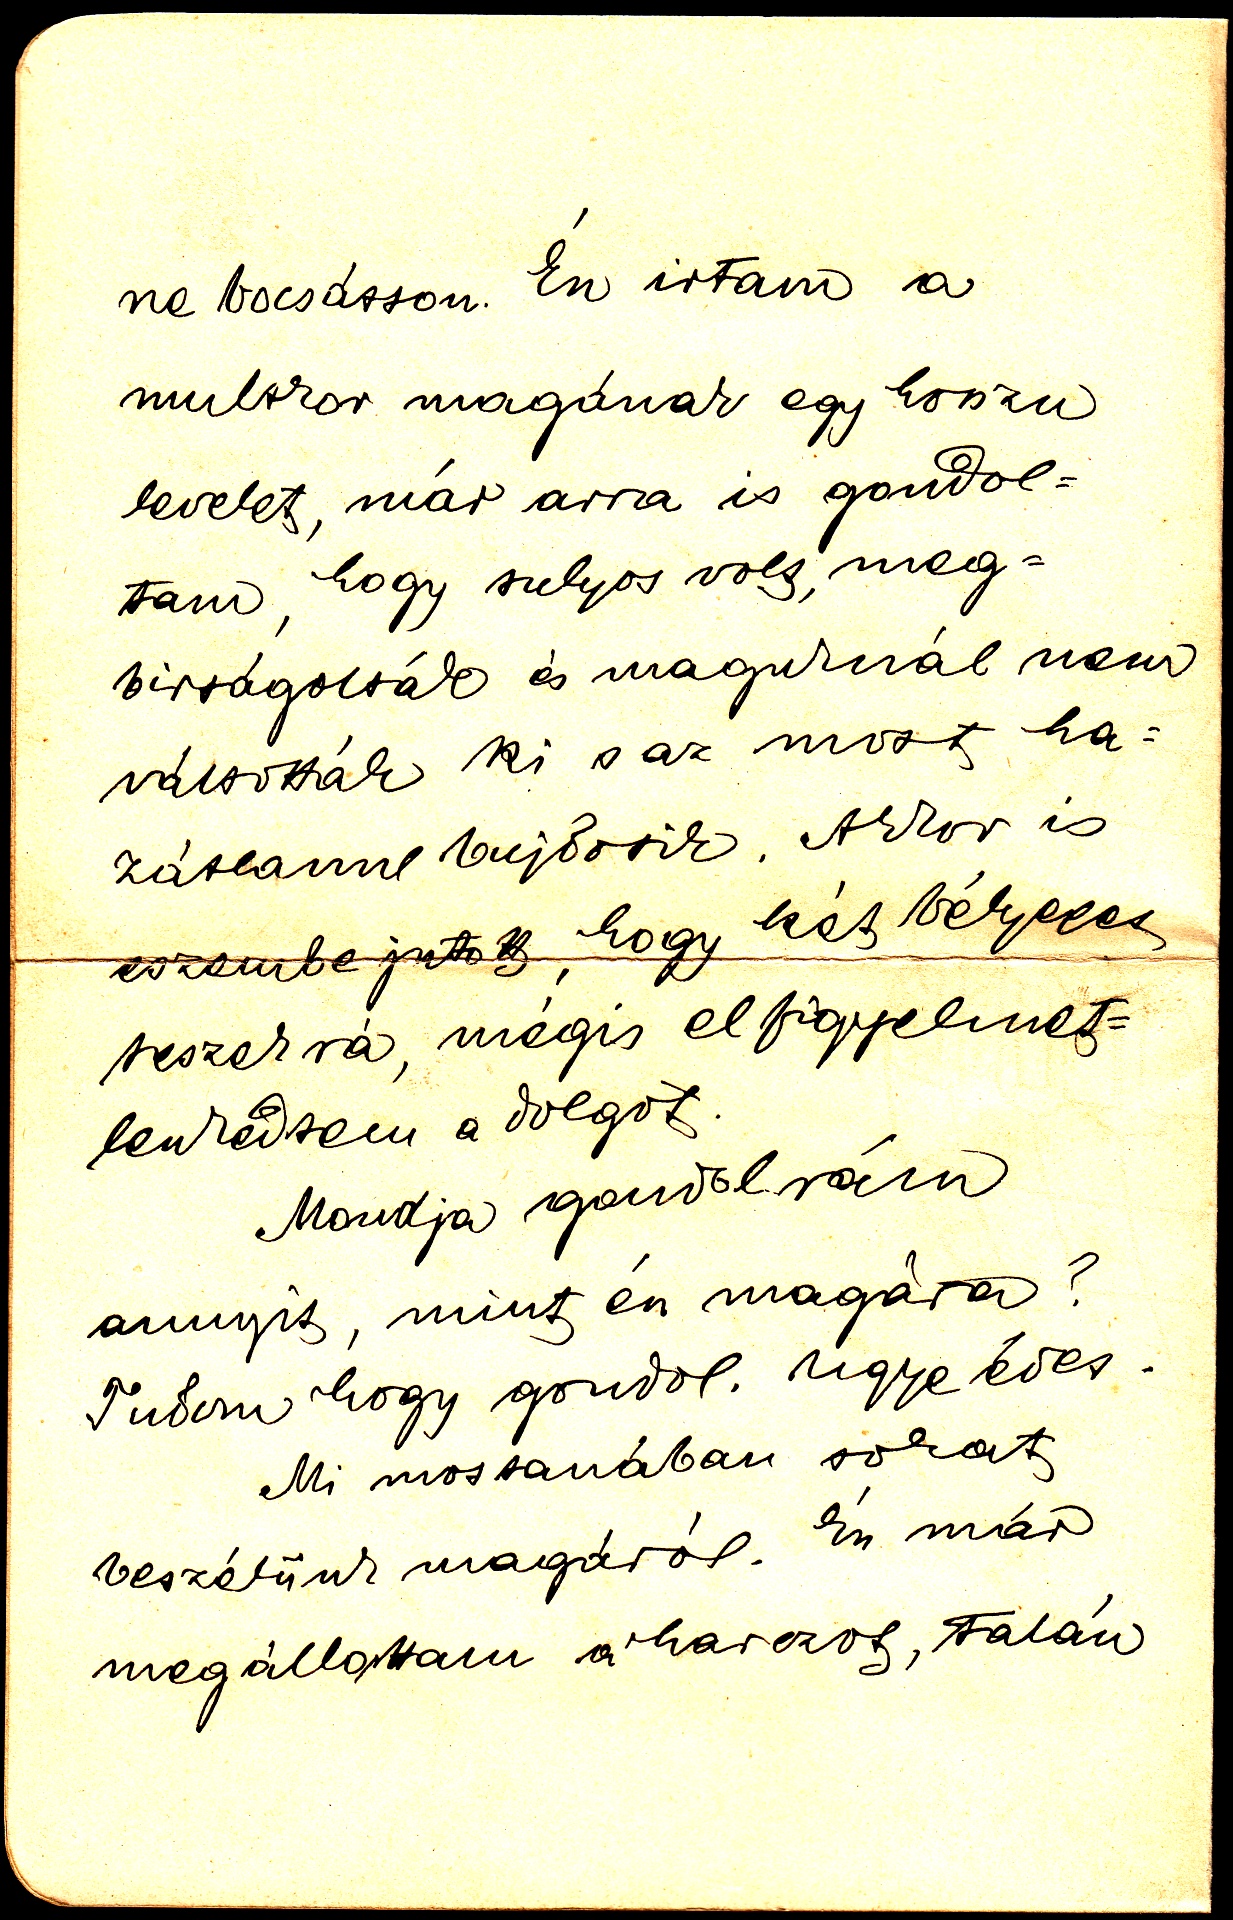 ne bocsásson. Én irtam a
multkor magának egy hosszu
levelet, már arra is gondol=
tam, hogy sulyos volt, meg=
birságolták és maguknál nem
váltották ki s az most ha=
zátlanul bujdosik. Akkor is
eszembe jutott, hogy két bélyeget
teszek rá, mégis elfigyelmet=
lenkedtem a dolgot.
Mondja gondol rám
annyit, mint én magára?
Tudom hogy gondol. Ugye édes.
Mi mostanában sokat
beszélünk magáról. Én már
megállottam a harczot, talán